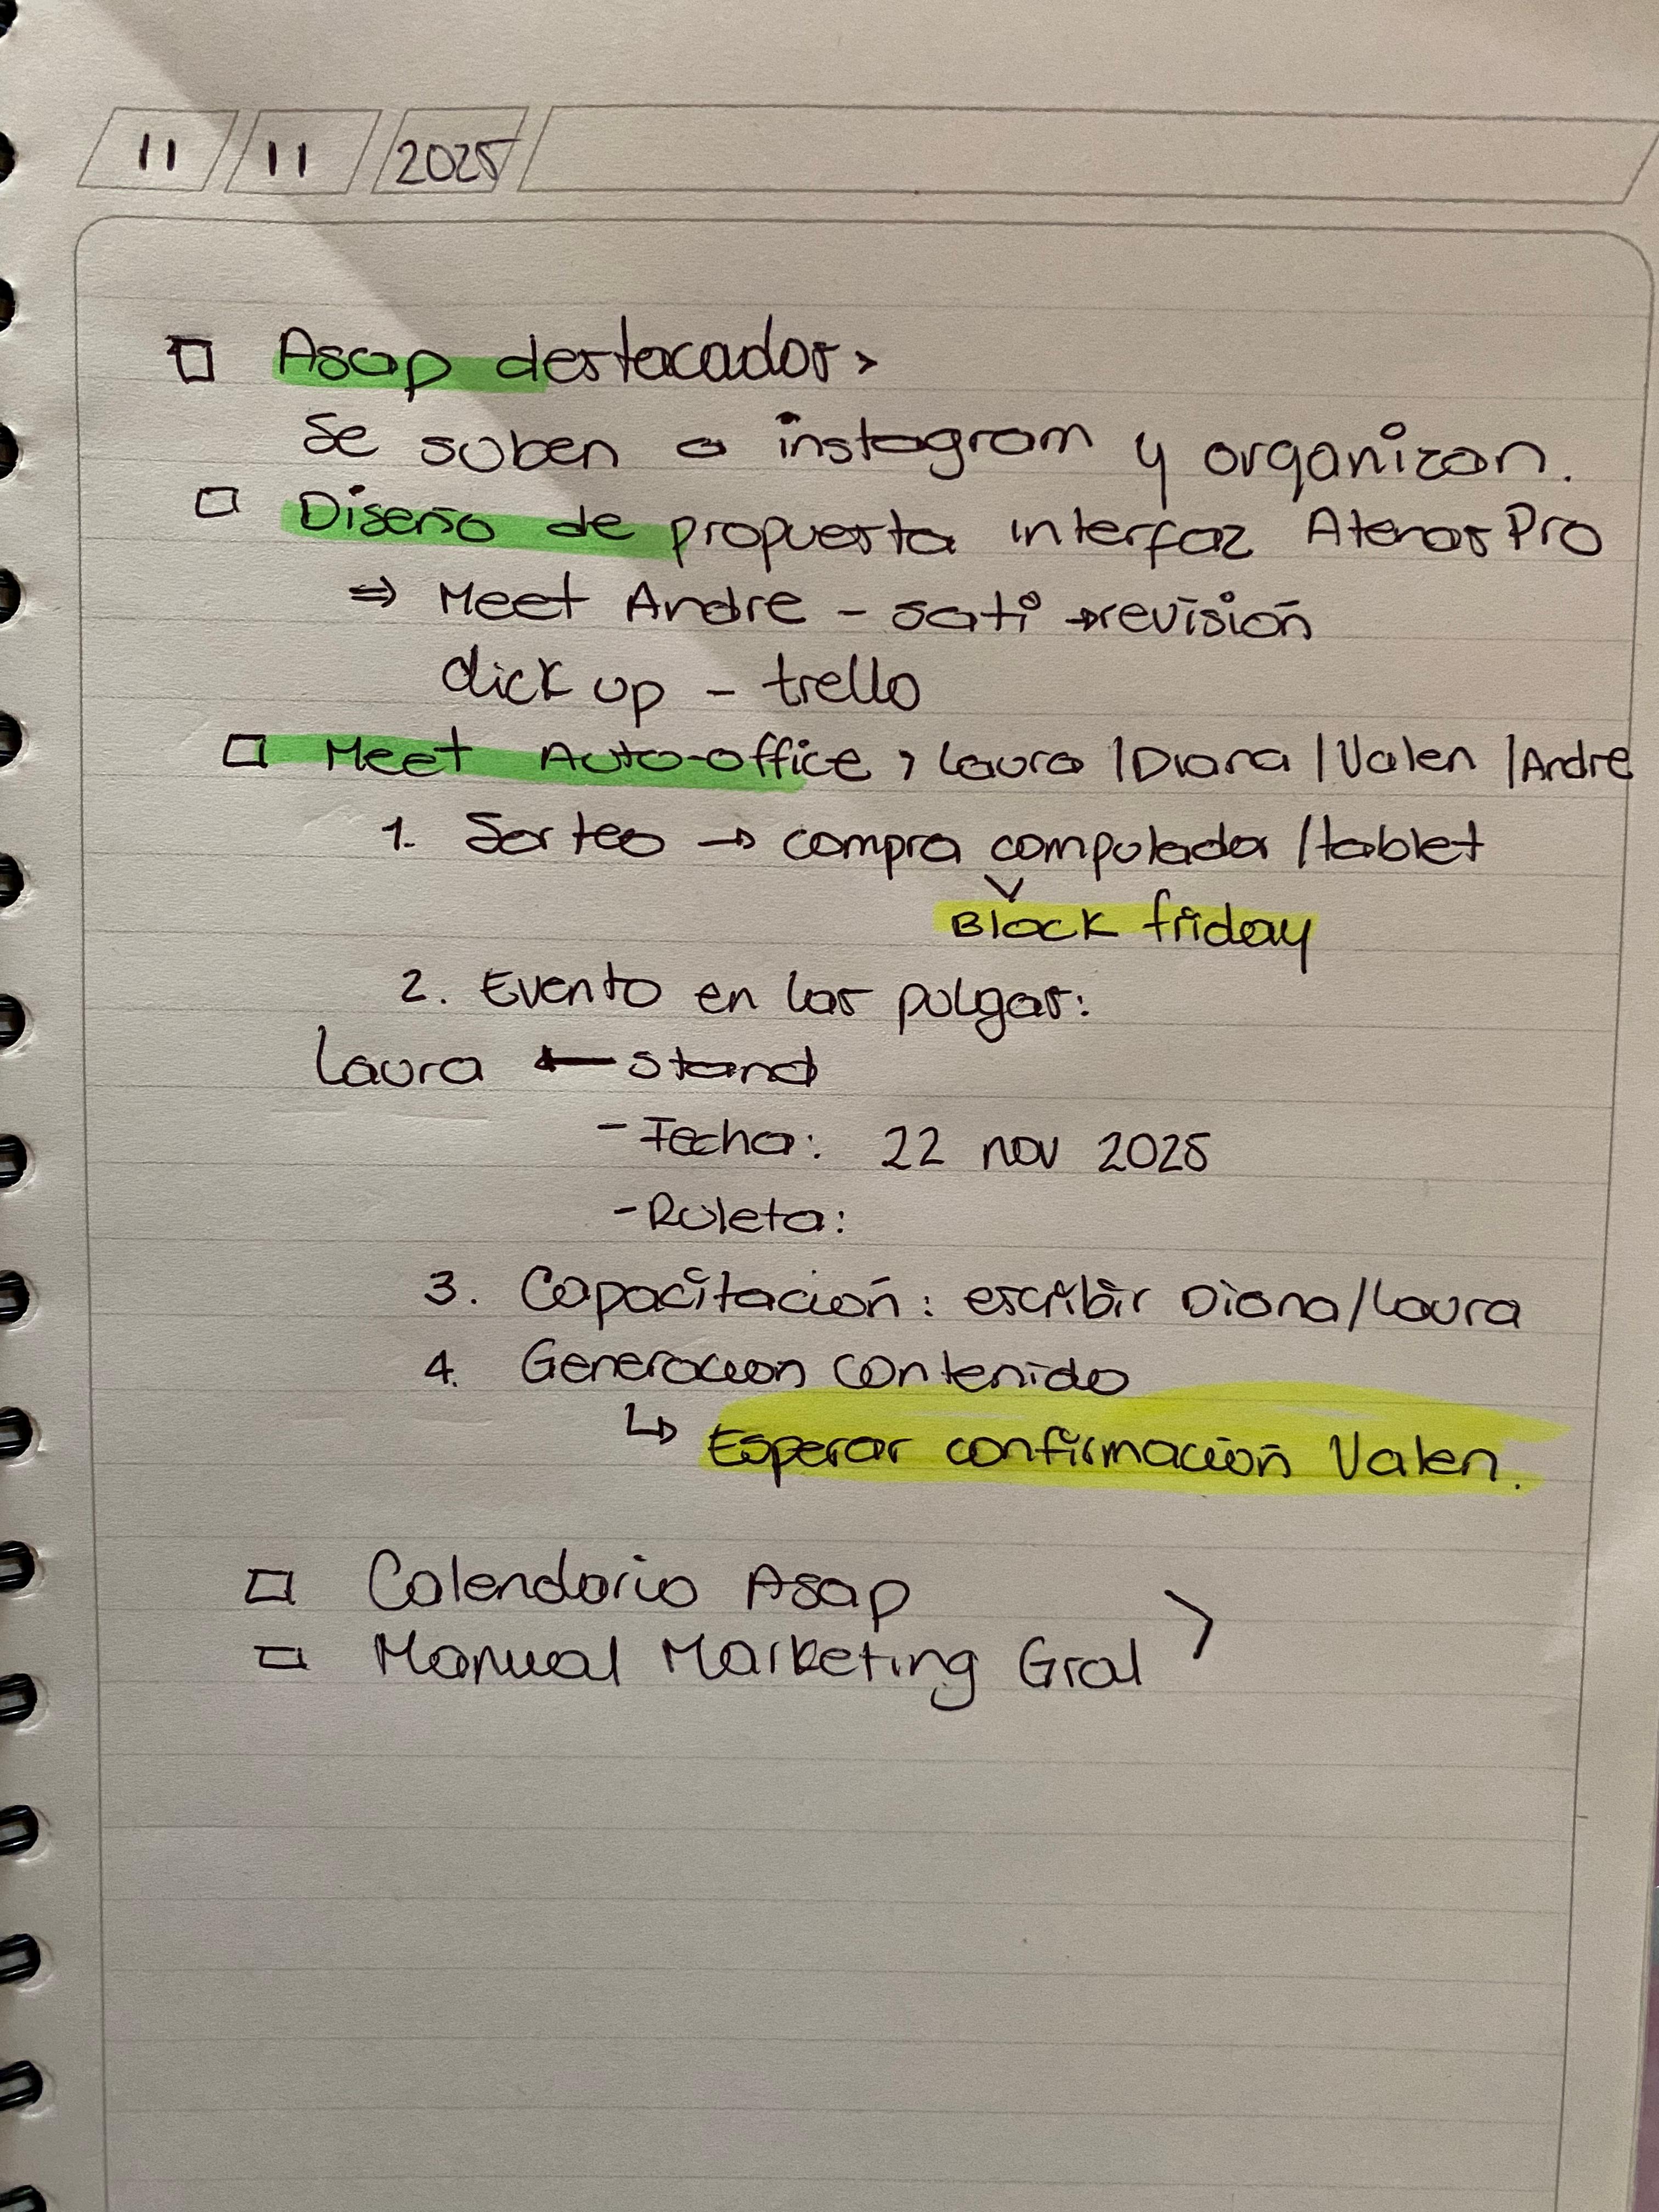 11 11 2025
□ Asap destacados >
Se suben a instagram y organizan.
□ Diseño de propuesta interfaz Atenas Pro
⇒ Meet Andre - sati → revisión
click up - trello
□ Meet Auto-office > Laura / Diana / Valen / Andre
1. Sorteo → compra computador / tablet
Black friday
2. Evento en las pulgas:
Laura ← stand
- Fecha: 22 nov 2025
- Ruleta:
3. Capacitación: escribir Diana / Laura
4. Generacion contenido
↳ Esperar confirmación Valen.
□ Calendario Asap
□ Manual Marketing Gral >